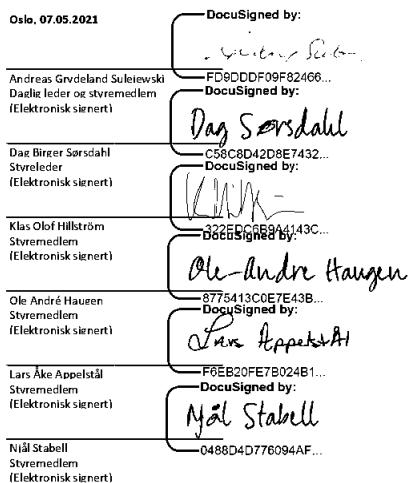 Oslo, 07.05.2021
DocuSigned by:
FD9DDDF09F82466...
Andreas Grydeland Sulejewski
Daglig leder og styremedlem
(Elektronisk signert)
DocuSigned by:
Dag Sørsdahl
C58C8D42D8E7432...
Dag Birger Sørsdahl
Styreleder
(Elektronisk signert)
DocuSigned by:
322EDC6B9A4143C...
Klas Olof Hillström
Styremedlem
(Elektronisk signert)
DocuSigned by:
Ole-Andre Haugen
8775413C0E7E43B...
Ole André Haugen
Styremedlem
(Elektronisk signert)
DocuSigned by:
Lars Appelstål
F6EB20FE7B024B1...
Lars Åke Appelstål
Styremedlem
(Elektronisk signert)
DocuSigned by:
Njål Stabell
0488D4D776094AF...
Njål Stabell
Styremedlem
(Elektronisk signert)